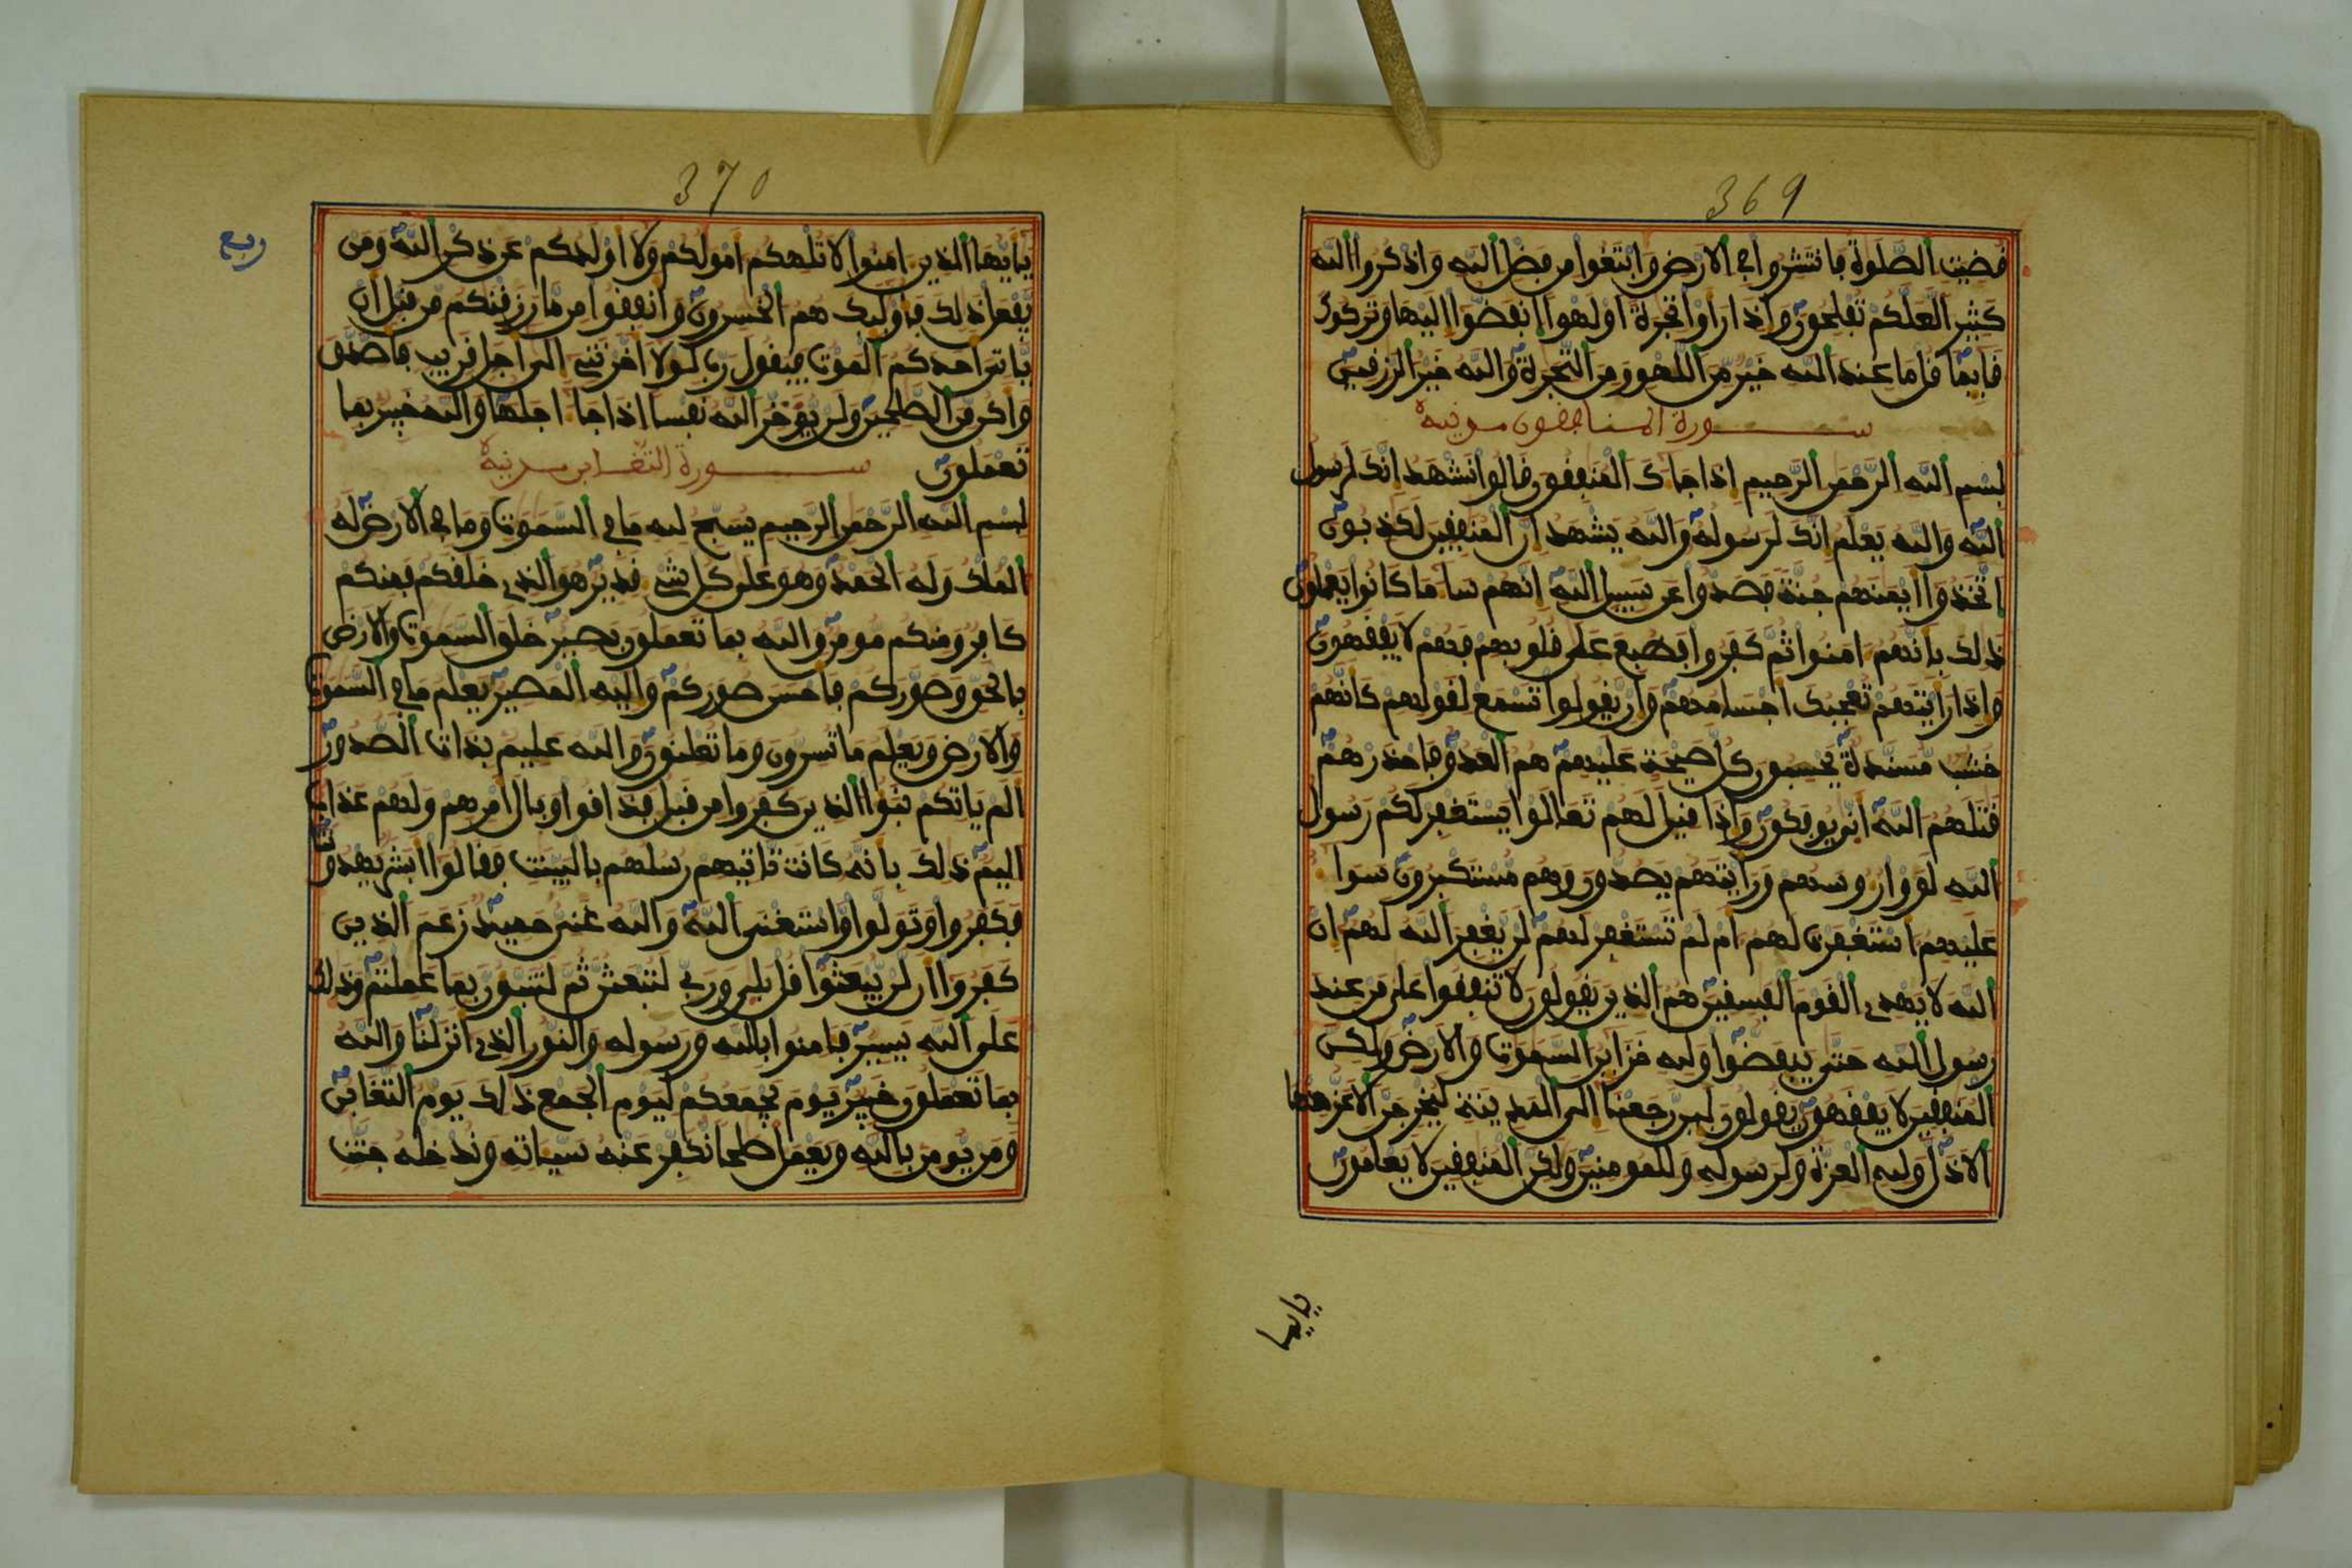 369
قضيت الصلوة فانتشروا في الارض وابتغوا من فضل الله واذكروا الله
كثيرا لعلكم تفلحون واذا راوا تجرة او لهوا انفضوا اليها وتركوك
قايما قل ما عند الله خير من اللهو ومن التجرة والله خير الرزقين
سورة المنافقون مدنية
بسم الله الرحمن الرحيم اذا جاك المنفقون قالوا نشهد انك لرسول
الله والله يعلم انك لرسوله والله يشهد ان المنفقين لكذبون
اتخذوا ايمنهم جنة فصدوا عن سبيل الله انهم سا ما كانوا يعملون
ذلك بانهم امنوا ثم كفروا فطبع على قلوبهم فهم لا يفقهون
واذا رايتهم تعجبك اجسامهم وان يقولوا تسمع لقولهم كانهم
خشب مسندة يحسبون كل صيحة عليهم هم العدو فاحذرهم
قتلهم الله انى يوفكون واذا قيل لهم تعالوا يستغفر لكم رسول
الله لووا روسهم ورايتهم يصدون وهم مستكبرون سوا
عليهم استغفرت لهم ام لم تستغفر لهم لن يغفر الله لهم ان
الله لا يهدي القوم الفسقين هم الذين يقولون لا تنفقوا على من عند
رسول الله حتى ينفضوا ولله خزاين السموت والارض ولكن
المنفقين لا يفقهون يقولون لين رجعنا الى المدينة ليخرجن الاعز منها
الاذل ولله العزة ولرسوله وللمومنين ولكن المنفقين لا يعلمون
يايها
370
ربع
يايها الذين امنوا لا تلهكم امولكم ولا اولدكم عن ذكر الله ومن
يفعل ذلك فاوليك هم الخسرون وانفقوا من ما رزقنكم من قبل ان
ياتي احدكم الموت فيقول رب لولا اخرتني الى اجل قريب فاصدق
واكن من الصلحين ولن يوخر الله نفسا اذا جا اجلها والله خبير بما
تعملون سورة التغابن مدنية
بسم الله الرحمن الرحيم يسبح لله ما في السموت وما في الارض له
الملك وله الحمد وهو على كل شي قدير هو الذي خلقكم فمنكم
كافر ومنكم مومن والله بما تعملون بصير خلق السموت والارض
بالحق وصوركم فاحسن صوركم واليه المصير يعلم ما في السموت
والارض ويعلم ما تسرون وما تعلنون والله عليم بذات الصدور
الم ياتكم نبوا الذين كفروا من قبل فذاقوا وبال امرهم ولهم عذاب
اليم ذلك بانه كانت تاتيهم رسلهم بالبينت فقالوا ابشر يهدوننا
فكفروا وتولوا واستغنى الله والله غني حميد زعم الذين
كفروا ان لن يبعثوا قل بلى وربي لتبعثن ثم لتنبون بما عملتم وذلك
على الله يسير فامنوا بالله ورسوله والنور الذي انزلنا والله
بما تعملون خبير يوم يجمعكم ليوم الجمع ذلك يوم التغابن
ومن يومن بالله ويعمل صلحا نكفر عنه سياته وندخله جنت